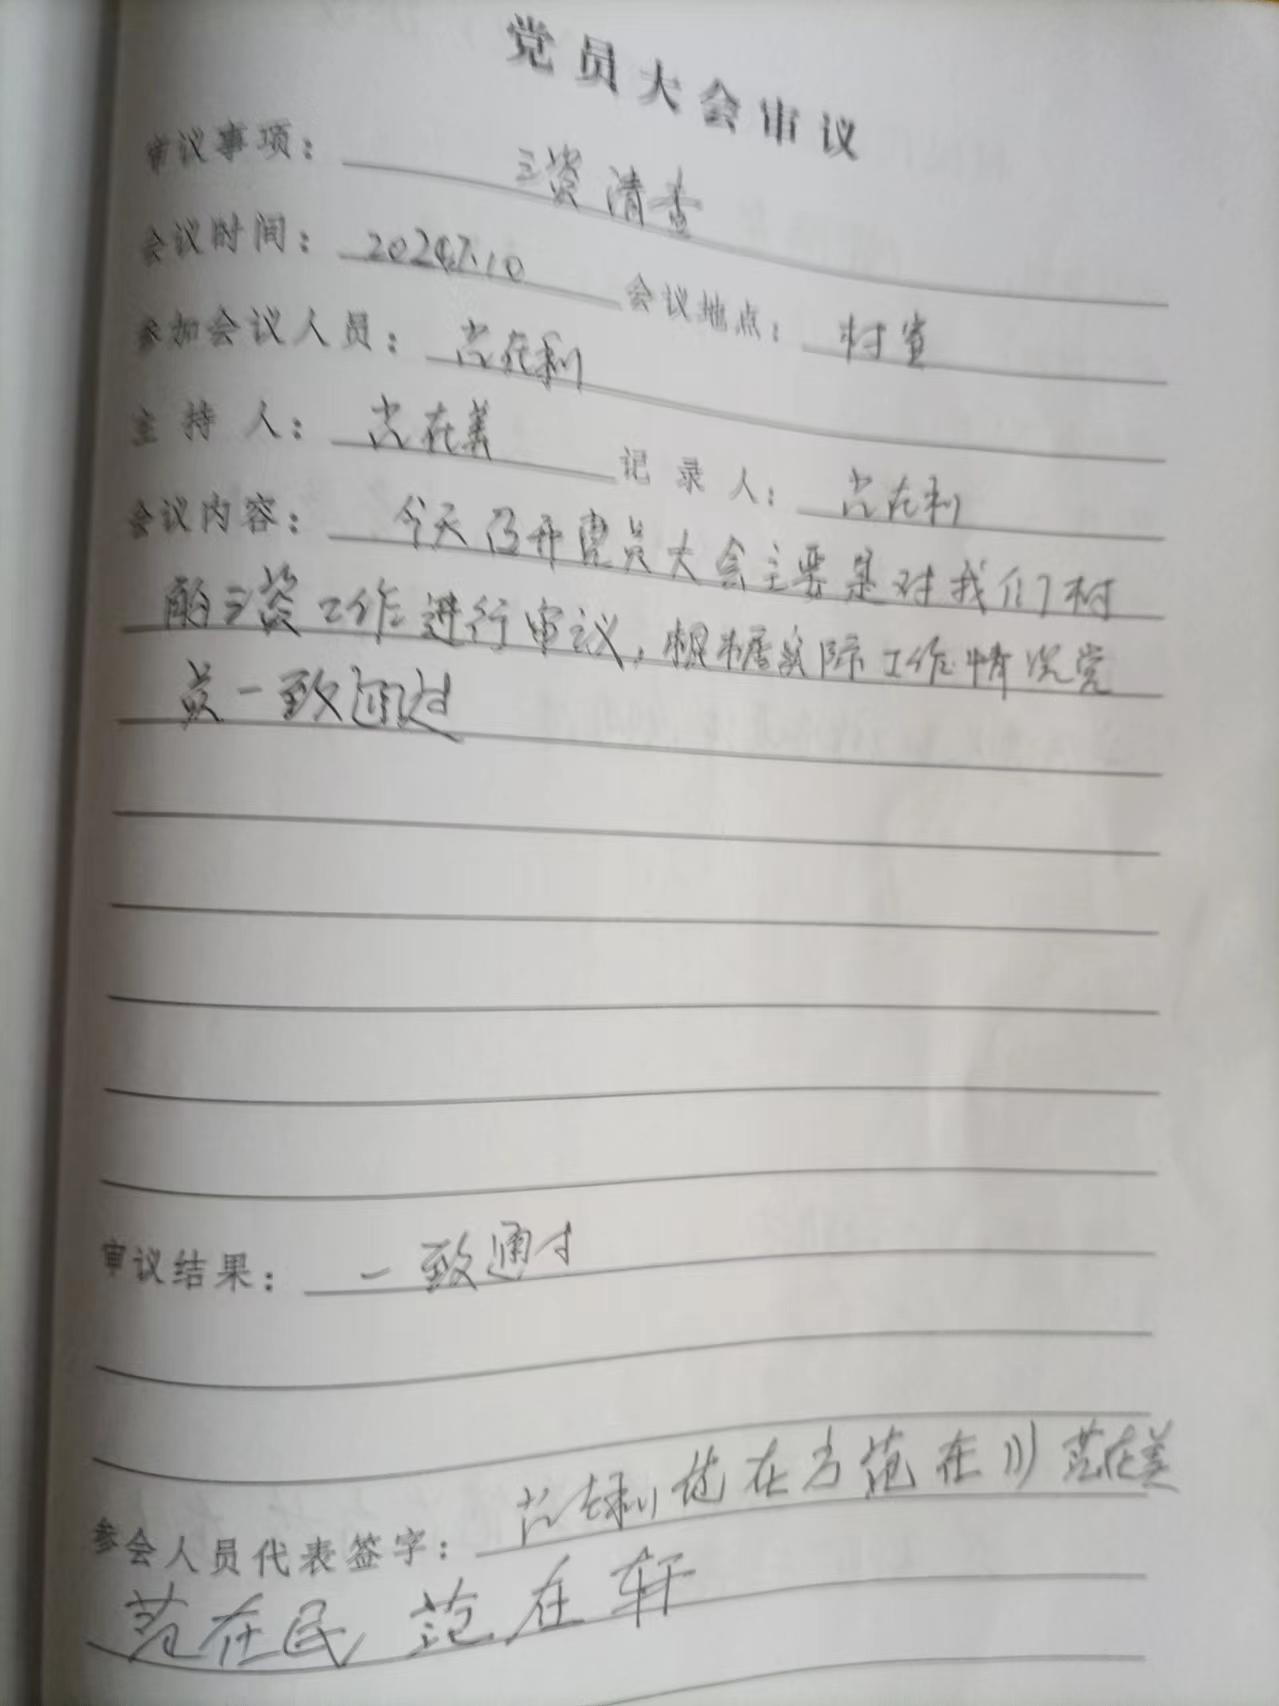 党员大会审议
审议事项： 三资清查
会议时间： 2024.7.10 会议地点： 村室
参加会议人员： 范在利
主持人： 范在美 记录人： 范在利
会议内容： 今天召开党员大会主要是对我们村
的三资工作进行审议，根据实际工作情况党
员一致通过
审议结果： 一致通过
参会人员代表签字： 范在利 范在方 范在川 范在美
范在民 范在轩